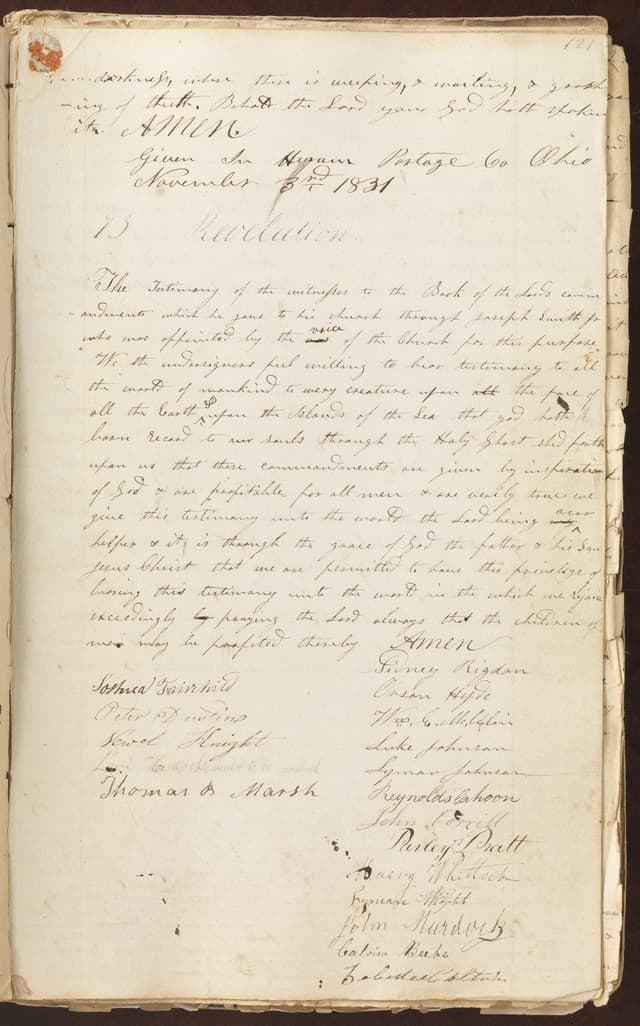 121
darkness, where there is weeping, & wailing, & gnash
-ing of theth. Behold the Lord your God hath spoken
it. AMEN
Given In Hiram Portage Co Ohio
November 3rd 1831
73 Revelation
The Testimony of the witnesses to the Book of the Lords comm
-andments which he gave to his church through Joseph Smith jr
who was appointed by the voice of the Church for this purpose
We the undersigners feel willing to bear testimony to all
the world of mankind to every creature upon all the face of
all the Earth & upon the Islands of the Sea that god hath
born record to our souls through the Holy Ghost shed forth
upon us that these commandments are given by inspiration
of God & are profitable for all men & are verily true we
give this testimony unto the world the Lord being our
helper & it is through the grace of God the father & his Son
Jesus Christ that we are permitted to have this privelege of
bearing this testimony unto the world in the which we rejoice
exceedingly by praying the Lord always that the children of
men may be profited thereby Amen
Sidney Rigdon
Orson Hyde
Wm. E. McLelin
Luke Johnson
Lyman Johnson
Reynolds Cahoon
John Corrill
Parley Pratt
Harvey Whitlock
Lyman Wight
John Murdock
Calvin Beebe
Zebedee Coltrin
Joshua Fairchild
Peter Dustins
Newel Knight
Levi
Thomas B Marsh